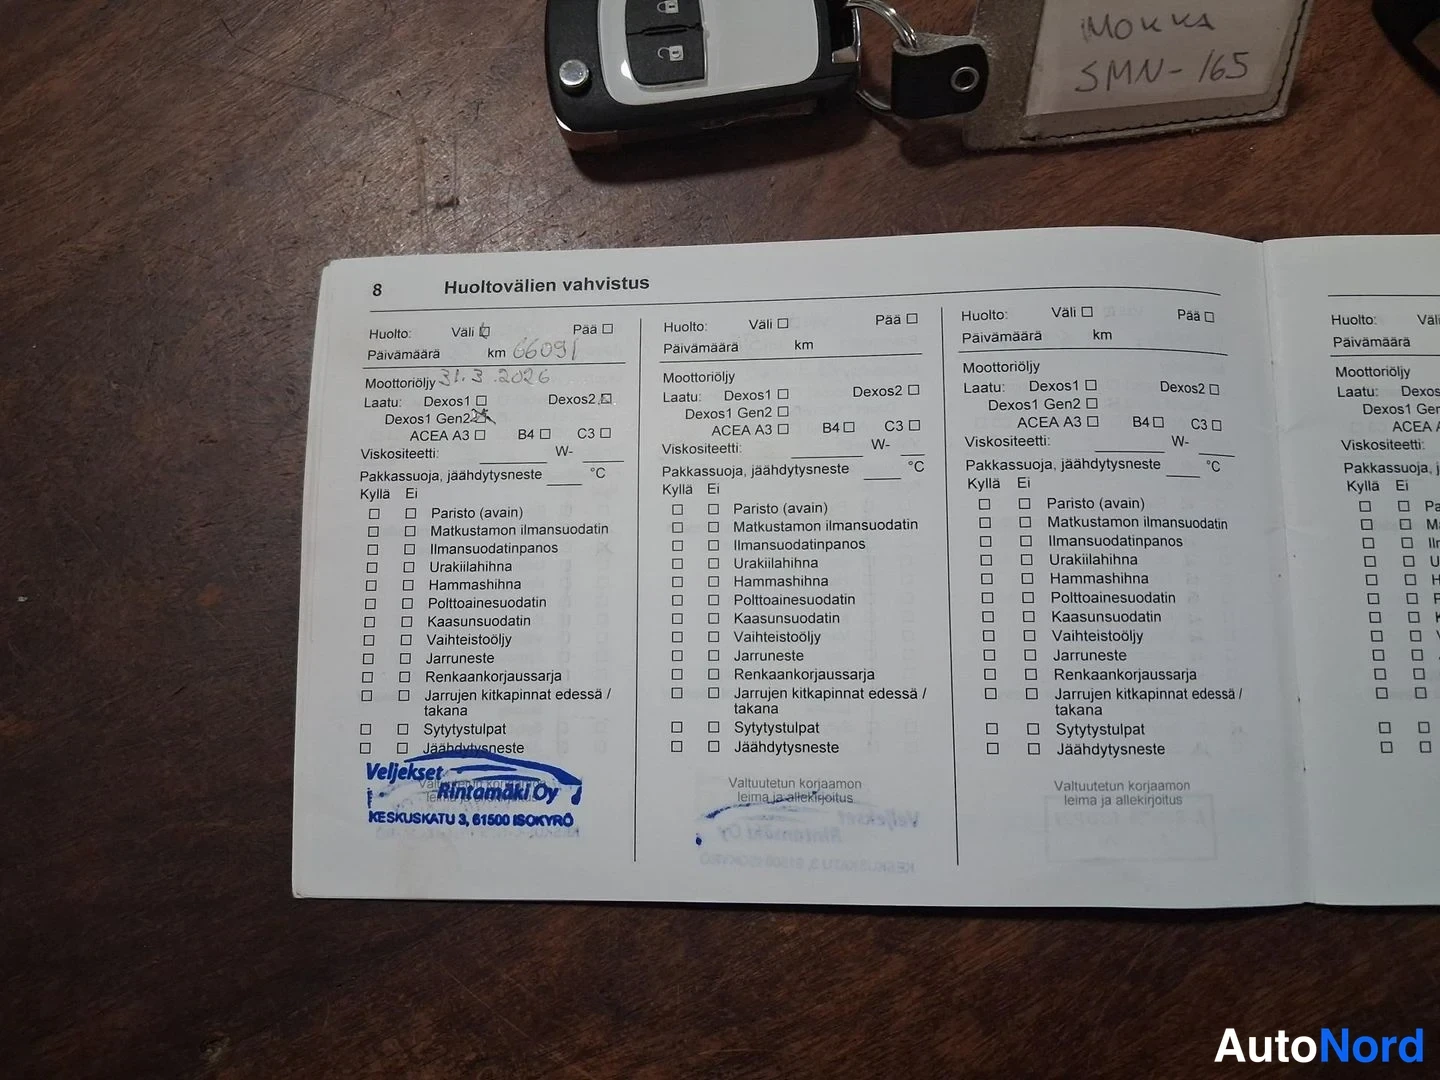 Mokka
SMN-165
8 Huoltovälien vahvistus
Huolto: Väli Pää
Päivämäärä km 66091
Moottoriöljy 31.3.2026
Laatu: Dexos1 Dexos2
Dexos1 Gen2
ACEA A3 B4 C3
Viskositeetti: W-
Pakkassuoja, jäähdytysneste °C
Kyllä Ei
Paristo (avain)
Matkustamon ilmansuodatin
Ilmansuodatinpanos
Urakiilahihna
Hammashihna
Polttoainesuodatin
Kaasunsuodatin
Vaihteistoöljy
Jarruneste
Renkaankorjaussarja
Jarrujen kitkapinnat edessä /
takana
Sytytystulpat
Jäähdytysneste
Valtuutetun korjaamon
leima ja allekirjoitus
Veljekset
Rintamäki Oy
KESKUSKATU 3, 61500 ISOKYRÖ
Huolto: Väli Pää
Päivämäärä km
Moottoriöljy
Laatu: Dexos1 Dexos2
Dexos1 Gen2
ACEA A3 B4 C3
Viskositeetti: W-
Pakkassuoja, jäähdytysneste °C
Kyllä Ei
Paristo (avain)
Matkustamon ilmansuodatin
Ilmansuodatinpanos
Urakiilahihna
Hammashihna
Polttoainesuodatin
Kaasunsuodatin
Vaihteistoöljy
Jarruneste
Renkaankorjaussarja
Jarrujen kitkapinnat edessä /
takana
Sytytystulpat
Jäähdytysneste
Valtuutetun korjaamon
leima ja allekirjoitus
Huolto: Väli Pää
Päivämäärä km
Moottoriöljy
Laatu: Dexos1 Dexos2
Dexos1 Gen2
ACEA A3 B4 C3
Viskositeetti: W-
Pakkassuoja, jäähdytysneste °C
Kyllä Ei
Paristo (avain)
Matkustamon ilmansuodatin
Ilmansuodatinpanos
Urakiilahihna
Hammashihna
Polttoainesuodatin
Kaasunsuodatin
Vaihteistoöljy
Jarruneste
Renkaankorjaussarja
Jarrujen kitkapinnat edessä /
takana
Sytytystulpat
Jäähdytysneste
Valtuutetun korjaamon
leima ja allekirjoitus
Huolto: Väli
Päivämäärä
Moottoriöljy
Laatu: Dexos
Dexos1
ACEA A
Viskositeetti:
Pakkassuoja, j
Kyllä Ei
AutoNord